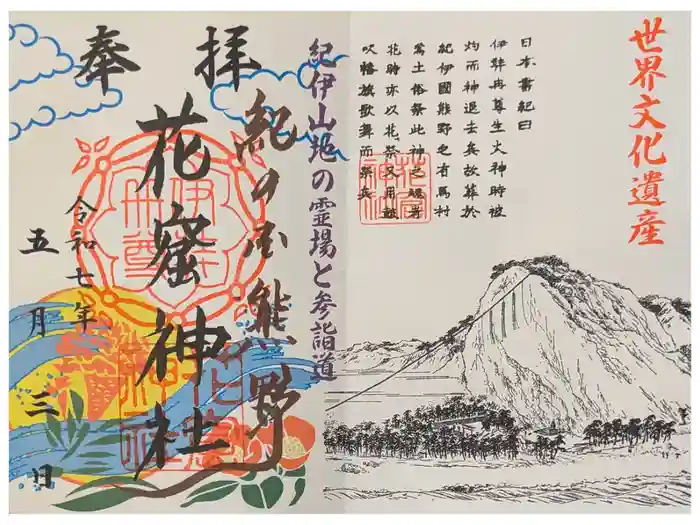 世界文化遺産
日本書紀曰
伊弉冉尊生火神時被
灼而神退去矣故葬於
紀伊國熊野之有馬村
焉土俗祭此神之魂者
花時亦以花祭又用鼓
吹幡旗歌舞而祭矣
花窟神社
紀伊山地の霊場と参詣道
奉拝
紀の国熊野
花窟神社
令和七年
五月三日
伊弉冉尊